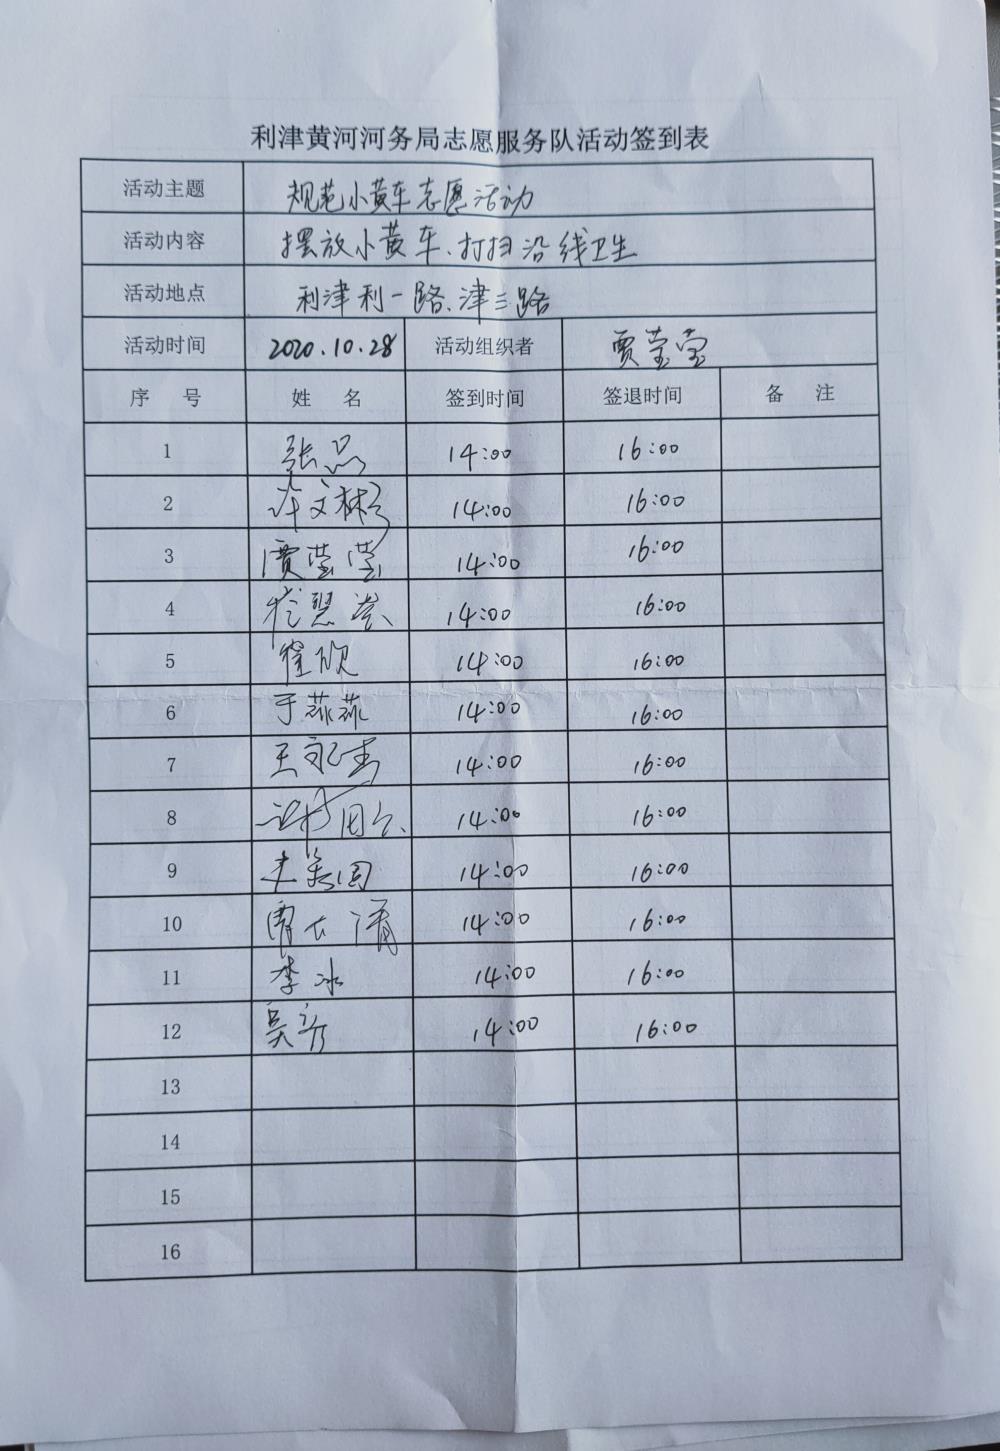 利津黄河河务局志愿服务队活动签到表
活动主题 规范小黄车志愿活动
活动内容 摆放小黄车、打扫沿线卫生
活动地点 利津利一路、津三路
活动时间 2020.10.28 活动组织者 贾莹莹
序 号 姓 名 签到时间 签退时间 备 注
1 张品 14:00 16:00
2 许文彬 14:00 16:00
3 贾莹莹 14:00 16:00
4 14:00 16:00
5 崔欣 14:00 16:00
6 于菲菲 14:00 16:00
7 王永杰 14:00 16:00
8 14:00 16:00
9 14:00 16:00
10 14:00 16:00
11 李冰 14:00 16:00
12 吴彦 14:00 16:00
13
14
15
16